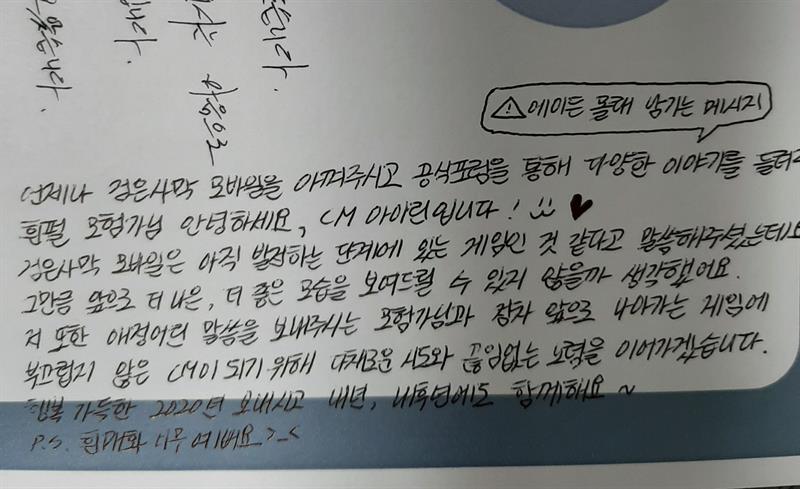 ⚠에이든 몰래 남기는 메시지
언제나 검은사막 모바일을 아껴주시고 공식포럼을 통해 다양한 이야기를 들려
흰펄 모험가님 안녕하세요, CM 아아린입니다! ♥
검은사막 모바일은 아직 발전하는 단계에 있는 게임인 것 같다고 말씀해주셨는데요
그만큼 앞으로 더 나은, 더 좋은 모습을 보여드릴 수 있지 않을까 생각했어요.
저 또한 애정어린 말씀을 보내주시는 모험가님과 점차 앞으로 나아가는 게임에
부끄럽지 않은 CM이 되기 위해 다채로운 시도와 끊임없는 노력을 이어가겠습니다.
행복 가득한 2020년 보내시고 내년, 내후년에도 함께해요~
P.S. 너무 예뻐요>_<
습니다.
마음으로
니다.
습니다.